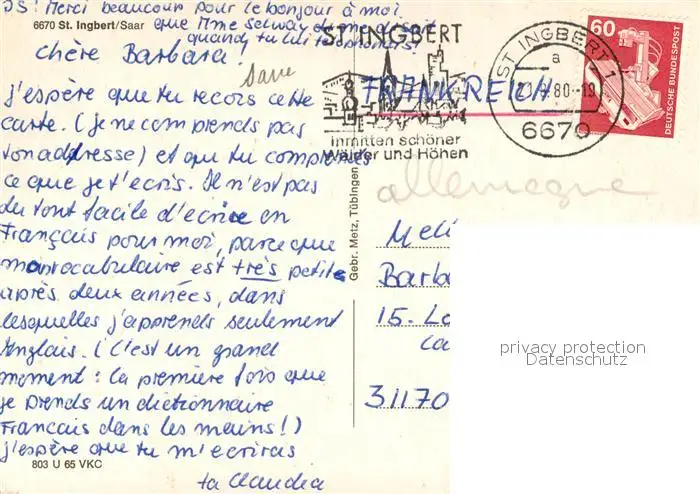 PS! Merci beaucoup pour le bonjour à moi
que Mme Selway
quand tu lui
6670 St. Ingbert/Saar
Chère Barbara!
j'espère que tu recois cette
carte. (je ne comprends pas
ton adresse) et que tu comprends
ce que je t'écris. Il n'est pas
du tout facile d'écrire en
Français pour moi, parce que
mon vocabulaire est très petite
après deux années, dans
lesquelles j'apprends seulement
Anglais. (C'est un grand
moment: la première fois que
je prends un dictionnaire
Francais dans les mains!)
j'espère que tu m'écriras
ta Claudia
803 U 65 VKC
Gebr. Metz, Tübingen
ST INGBERT
inmitten schöner
Wälder und Höhen
ST INGBERT 1
a
80
6670
60
DEUTSCHE BUNDESPOST
FRANKREICH
allemagne
Barba
15.
31170
privacy protection
Datenschutz